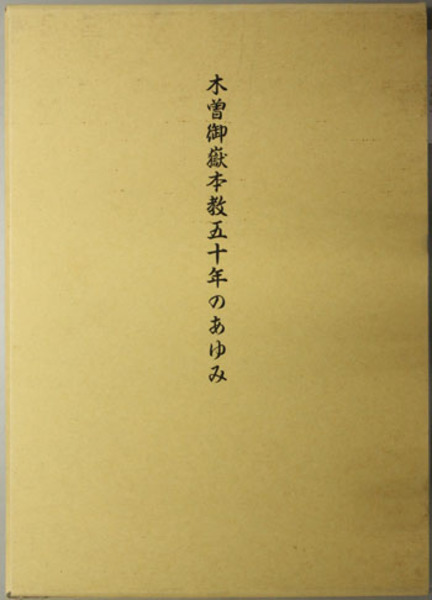 木曽御嶽本教五十年のあゆみ